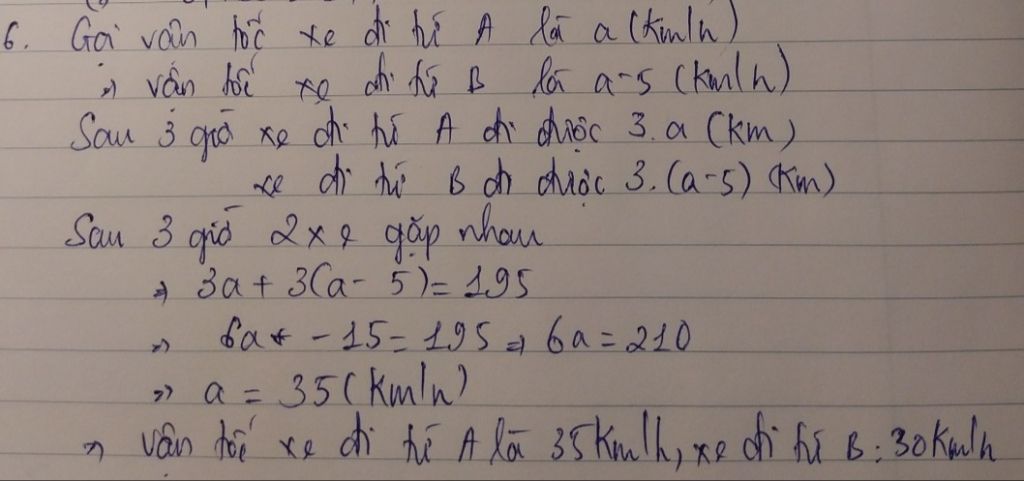 6. Gọi vận tốc xe đi từ A là a (km/h)
=> vận tốc xe đi từ B là a-5 (km/h)
Sau 3 giờ xe đi từ A đi được 3.a (km)
xe đi từ B đi được 3.(a-5) (km)
Sau 3 giờ 2 xe gặp nhau
=> 3a + 3(a - 5) = 195
=> 6a - 15 = 195 => 6a = 210
=> a = 35 (km/h)
=> vận tốc xe đi từ A là 35 km/h, xe đi từ B : 30 km/h